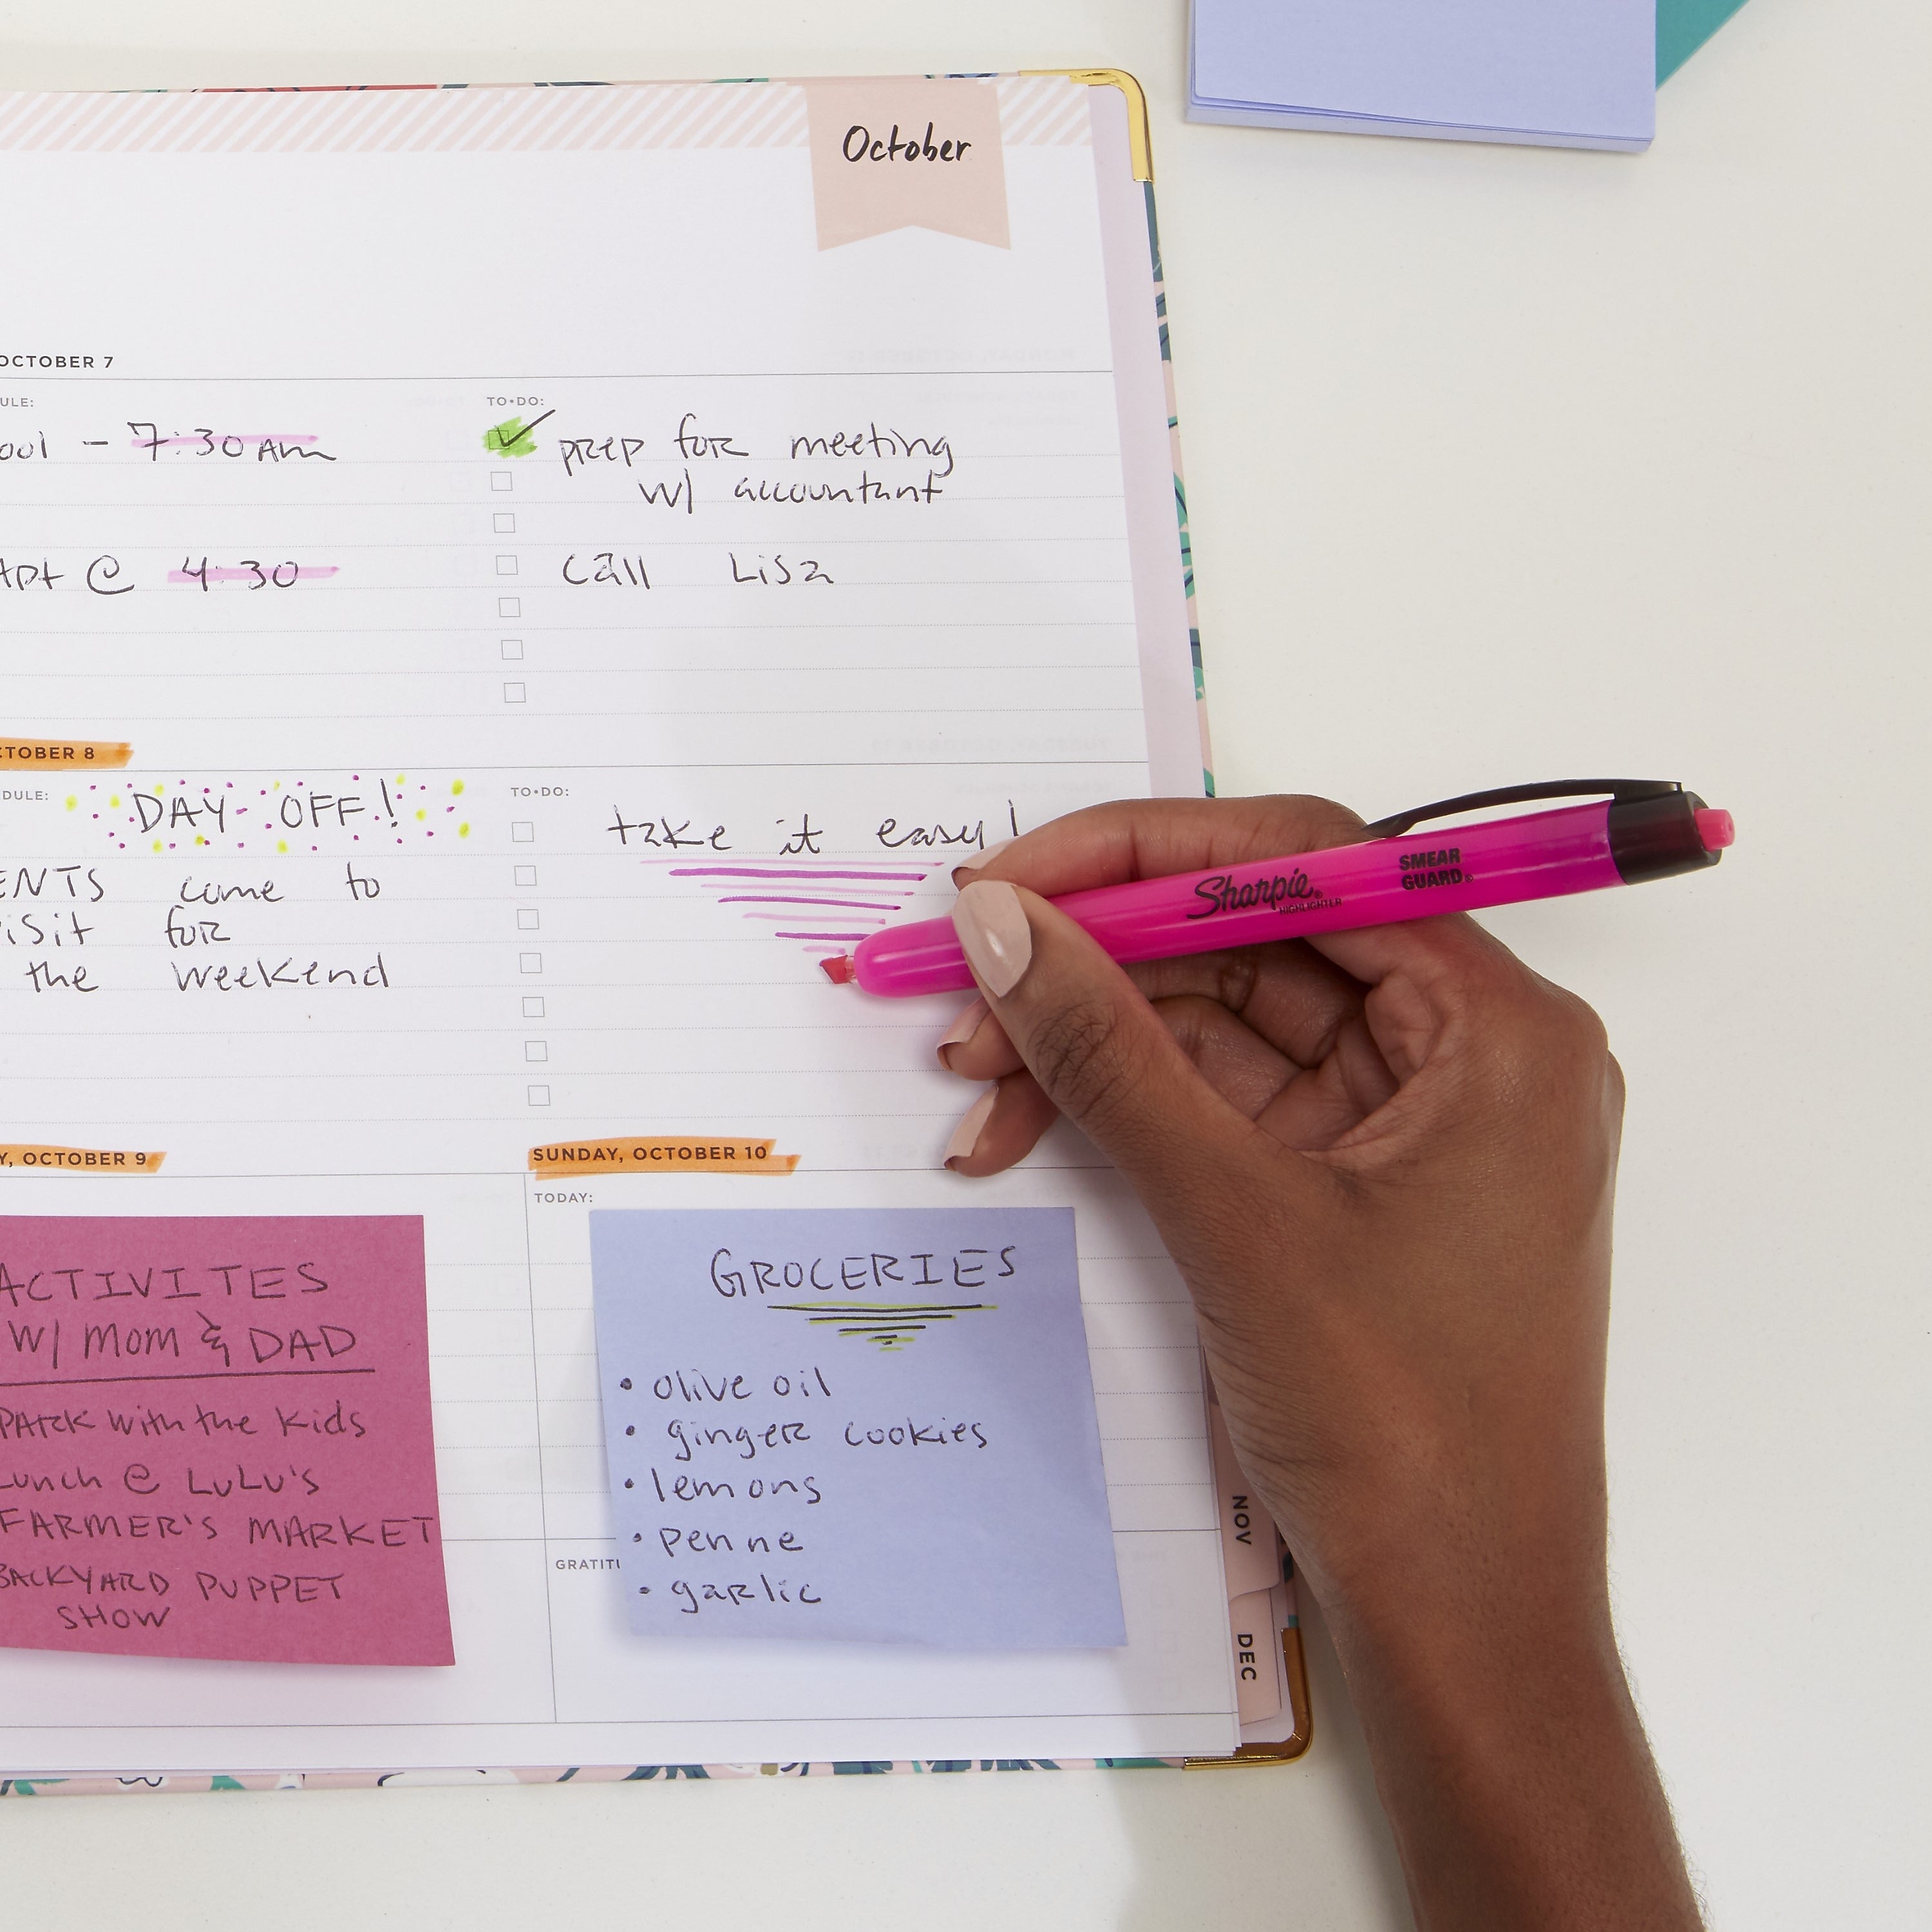 October
OCTOBER 7
TO•DO:
7:30 AM
prep for meeting
w/ accountant
@ 4:30
call Lisa
OCTOBER 8
DAY OFF!
TO•DO:
take it easy!
come to
for
the weekend
Sharpie®
HIGHLIGHTER
SMEAR
GUARD®
OCTOBER 9
ACTIVITES
W/ MOM & DAD
PARK with the kids
Lunch @ LuLu's
FARMER'S MARKET
BACKYARD PUPPET
SHOW
SUNDAY, OCTOBER 10
TODAY:
GROCERIES
• olive oil
• ginger cookies
• lemons
• penne
• garlic
NOV
DEC